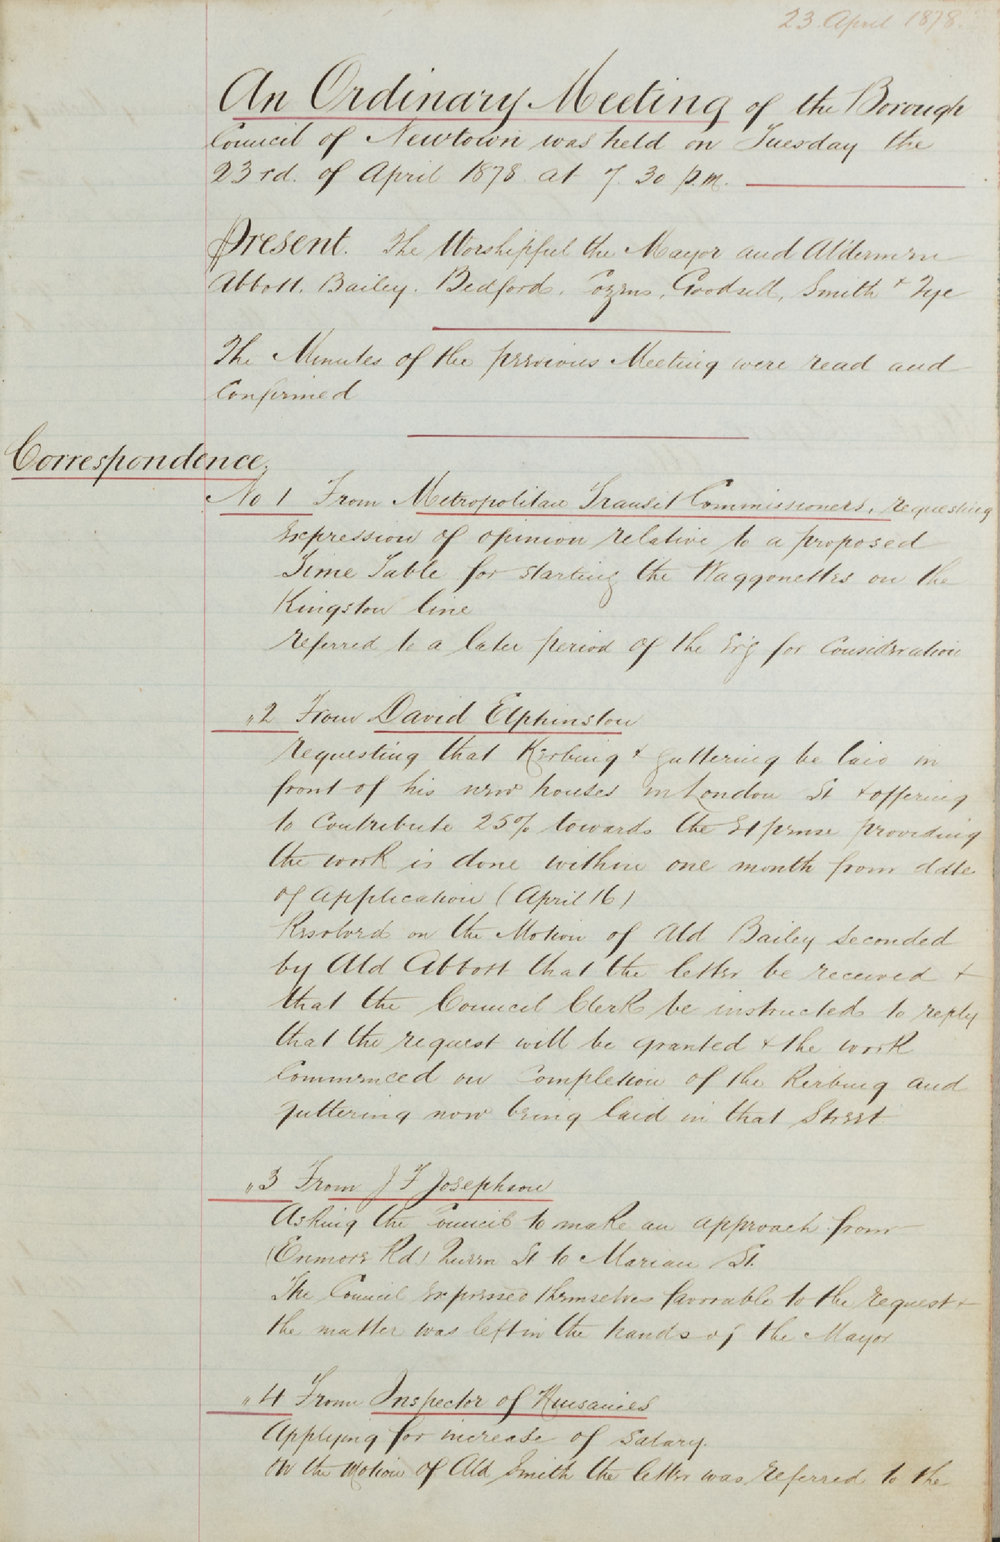 23 April 1878.
An Ordinary Meeting of the Borough
Council of Newtown was held on Tuesday the
23rd. of April 1878 at 7.30 p.m.
Present. The Worshipful the Mayor and Aldermen
Abbott. Bailey. Bedford. Cozens. Goodsell, Smith & Tye
The Minutes of the previous Meeting were read and
Confirmed
Correspondence,
No 1 From Metropolitan Transit Commissioners, requesting
expression of opinion relative to a proposed
Time Table for starting the Waggonettes on the
Kingston line
referred to a later period of the Ev'g for Consideration
"2 From David Elphinston
requesting that Kerbing & guttering be laid in
front of his new houses in London St & offering
to Contribute 25% towards the Expense providing
the work is done within one month from date
of application (April 16)
Resolved on the Motion of Ald Bailey seconded
by Ald Abbott that the letter be received &
that the Council Clerk be instructed to reply
that the request will be granted & the work
Commenced on Completion of the Kerbing and
guttering now being laid in that Street
"3 From J F Josephson
Asking the Council to make an approach from
(Enmore Rd) Queen St to Marian St.
The Council Expressed themselves favorable to the request &
the matter was left in the hands of the Mayor
"4 From Inspector of Nuisances
Applying for increase of Salary.
On the Motion of Ald Smith the letter was referred to the